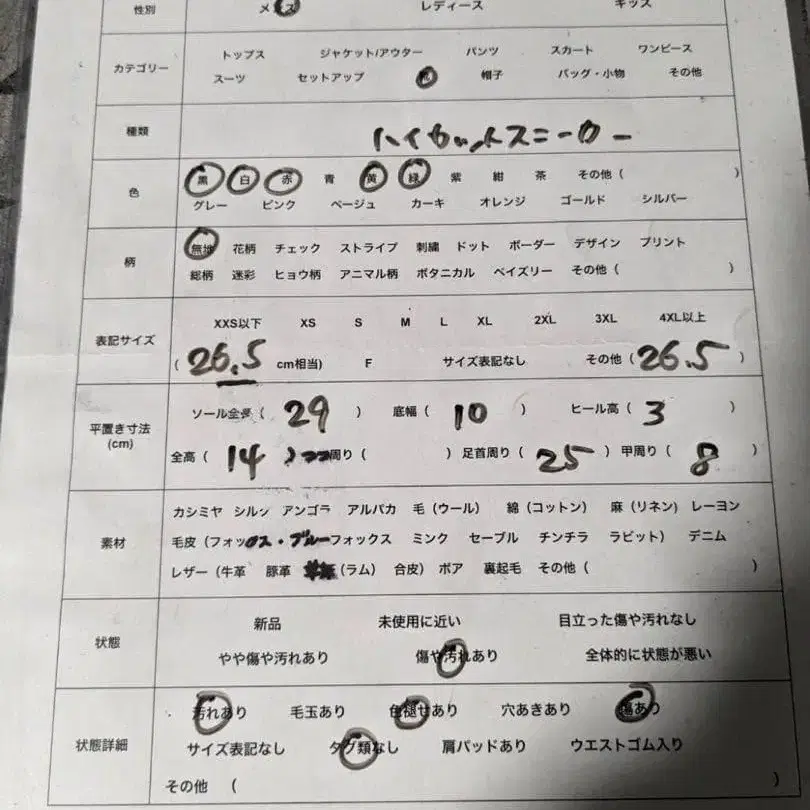 性別 メンズ レディース キッズ
カテゴリー
トップス ジャケット/アウター パンツ スカート ワンピース
スーツ セットアップ 靴 帽子 バッグ・小物 その他
種類 ハイカットスニーカー
色
黒 白 赤 青 黄 緑 紫 紺 茶 その他 ( )
グレー ピンク ベージュ カーキ オレンジ ゴールド シルバー
柄
無地 花柄 チェック ストライプ 刺繍 ドット ボーダー デザイン プリント
総柄 迷彩 ヒョウ柄 アニマル柄 ボタニカル ペイズリー その他 ( )
表記サイズ
XXS以下 XS S M L XL 2XL 3XL 4XL以上
( 26.5 cm相当) F サイズ表記なし その他 ( 26.5 )
平置き寸法
(cm)
ソール全長 ( 29 ) 底幅 ( 10 ) ヒール高 ( 3 )
全高 ( 14 ) 周り ( ) 足首周り ( 25 ) 甲周り ( 8 )
素材
カシミヤ シルク アンゴラ アルパカ 毛 (ウール) 綿 (コットン) 麻 (リネン) レーヨン
毛皮 (フォックス・ブルーフォックス ミンク セーブル チンチラ ラビット) デニム
レザー (牛革 豚革 (ラム) 合皮) ボア 裏起毛 その他 ( )
状態
新品 未使用に近い 目立った傷や汚れなし
やや傷や汚れあり 傷や汚れあり 全体的に状態が悪い
状態詳細
汚れあり 毛玉あり 色褪せあり 穴あきあり 傷あり
サイズ表記なし タグ類なし 肩パッドあり ウエストゴム入り
その他 ( )